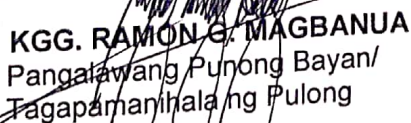 KGG. RAMON G. MAGBANUA
Pangalawang Punong Bayan/
Tagapamanihala ng Pulong